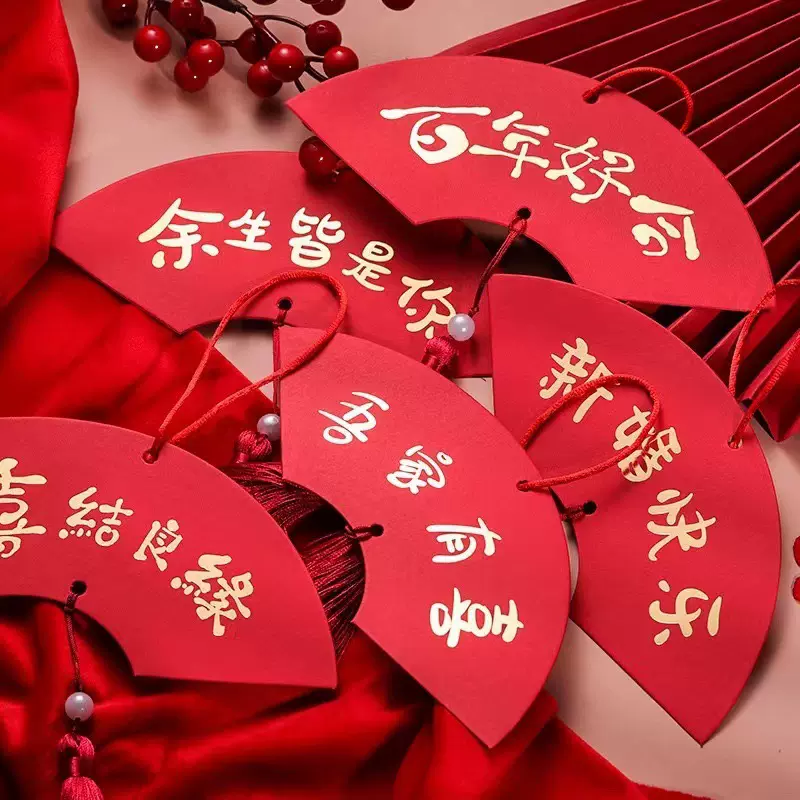 百年好合
余生皆是你
新婚快乐
吾家有喜
喜結良緣